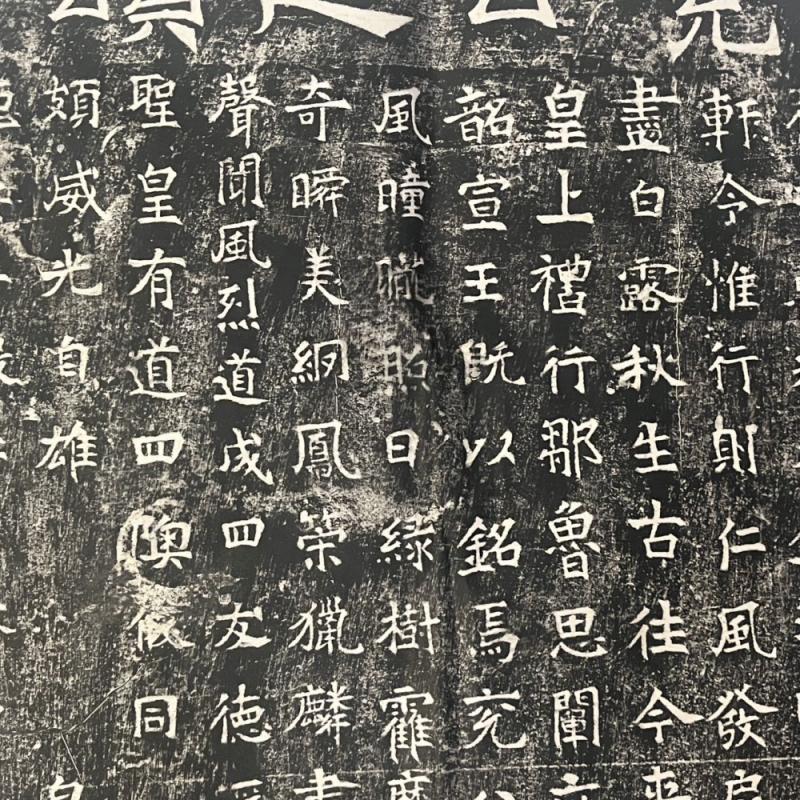 兖公之頌
軒令惟行則仁風發
盡白露秋生古往今來
皇上禮行鄒魯思闡
韶宣王旣以銘焉兖公
風曈曨照日緑樹靃靡
奇瞬美絅鳳篆獵麟書
聲聞風烈道成四友德
聖皇有道四隩依同
威光自雄